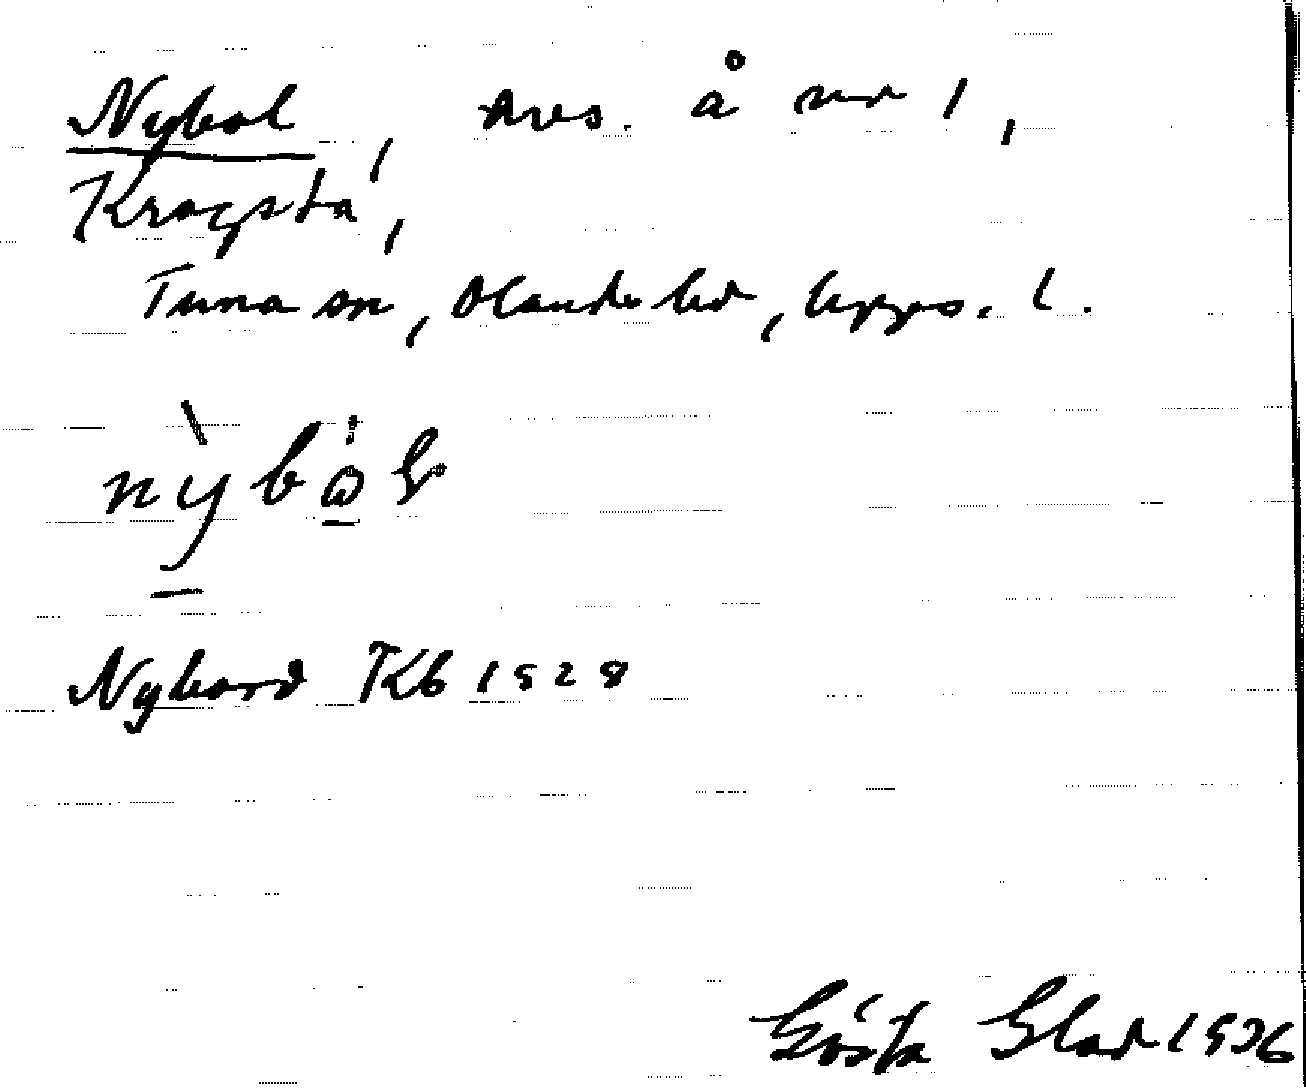 Nybol, åves. å nr 1,
Kragsta,
Tuna sn, Olands hd, Upps. l.
nỳbὼ̣ɫ
Nybord Kb 1528
Gösta Blad 1936